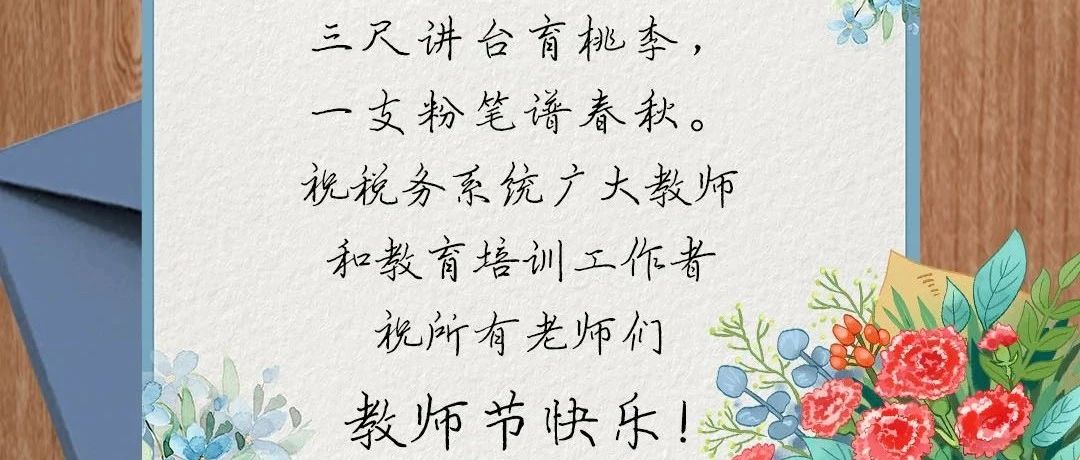 三尺讲台育桃李，
一支粉笔谱春秋。
祝税务系统广大教师
和教育培训工作者
祝所有老师们
教师节快乐！